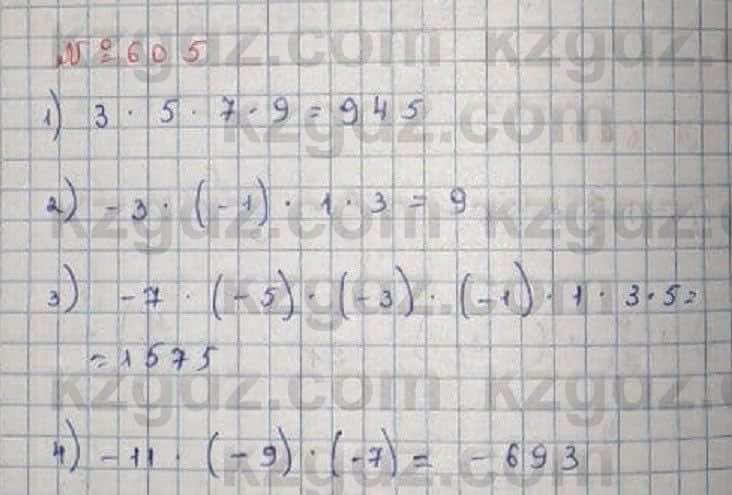 № 605
1) 3 · 5 · 7 · 9 = 945
2) -3 · (-1) · 1 · 3 = 9
3) -7 · (-5) · (-3) · (-1) · 1 · 3 · 5 =
= 1575
4) -11 · (-9) · (-7) = -693
kzgdz.com kzgdz.com
kzgdz.com
kzgdz.com kzgdz.com
kzgdz.com
kzgdz.com kzgdz.com
kzgdz.com